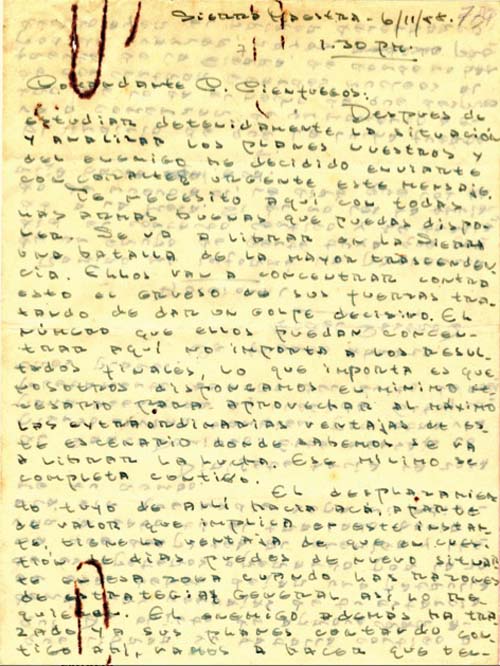 Sierra Maestra - 6/11/58.
1.30 pm.
Comandante C. Cienfuegos:
Despues de
estudiar detenidamente la situación
y analizar los planes nuestros y
del enemigo he decidido enviarte
con caracter urgente este mensaje.
Te necesito aquí con todas
las armas buenas que puedas dispo-
ner. Se va a librar en la Sierra
una batalla de la mayor trascenden-
cia. Ellos van a concentrar contra
esto el grueso de sus fuerzas tra-
tando de dar un golpe decisivo. El
número que ellos puedan concen-
trar aquí no importa a los resul-
tados finales, lo que importa es que
nosotros dispongamos el mínimo ne-
cesario para aprovechar al máximo
las extraordinarias ventajas de es-
te escenario donde sabemos se va
a librar la lucha. Ese mínimo se
completa contigo.
El desplazamien
to tuyo de allí hacia acá, aparte
de valor que implica en este instan-
te, tiene la ventaja de que en cues-
tión de días puedes de nuevo situar
te en esa zona cuando las razones
de estrategia general así lo re-
quieran. El enemigo ademas ha tra
zado ya sus planes contando con-
tigo ahí, vamos a hacer que ten-